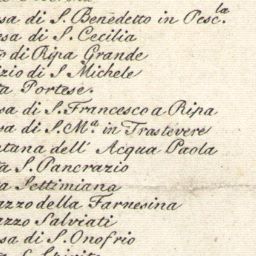 sa di S. Benedetto in Pesc.la
sa di S. Cecilia
di Ripa Grande
zio di S. Michele
ta Portese.
sa di S. Francesco a Ripa
sa di S. M.a in Trastevere
tana dell' Acqua Paola
ta S. Pancrazio
a Settimiana
azzo della Farnesina
azzo Salviati
sa di S. Onofrio